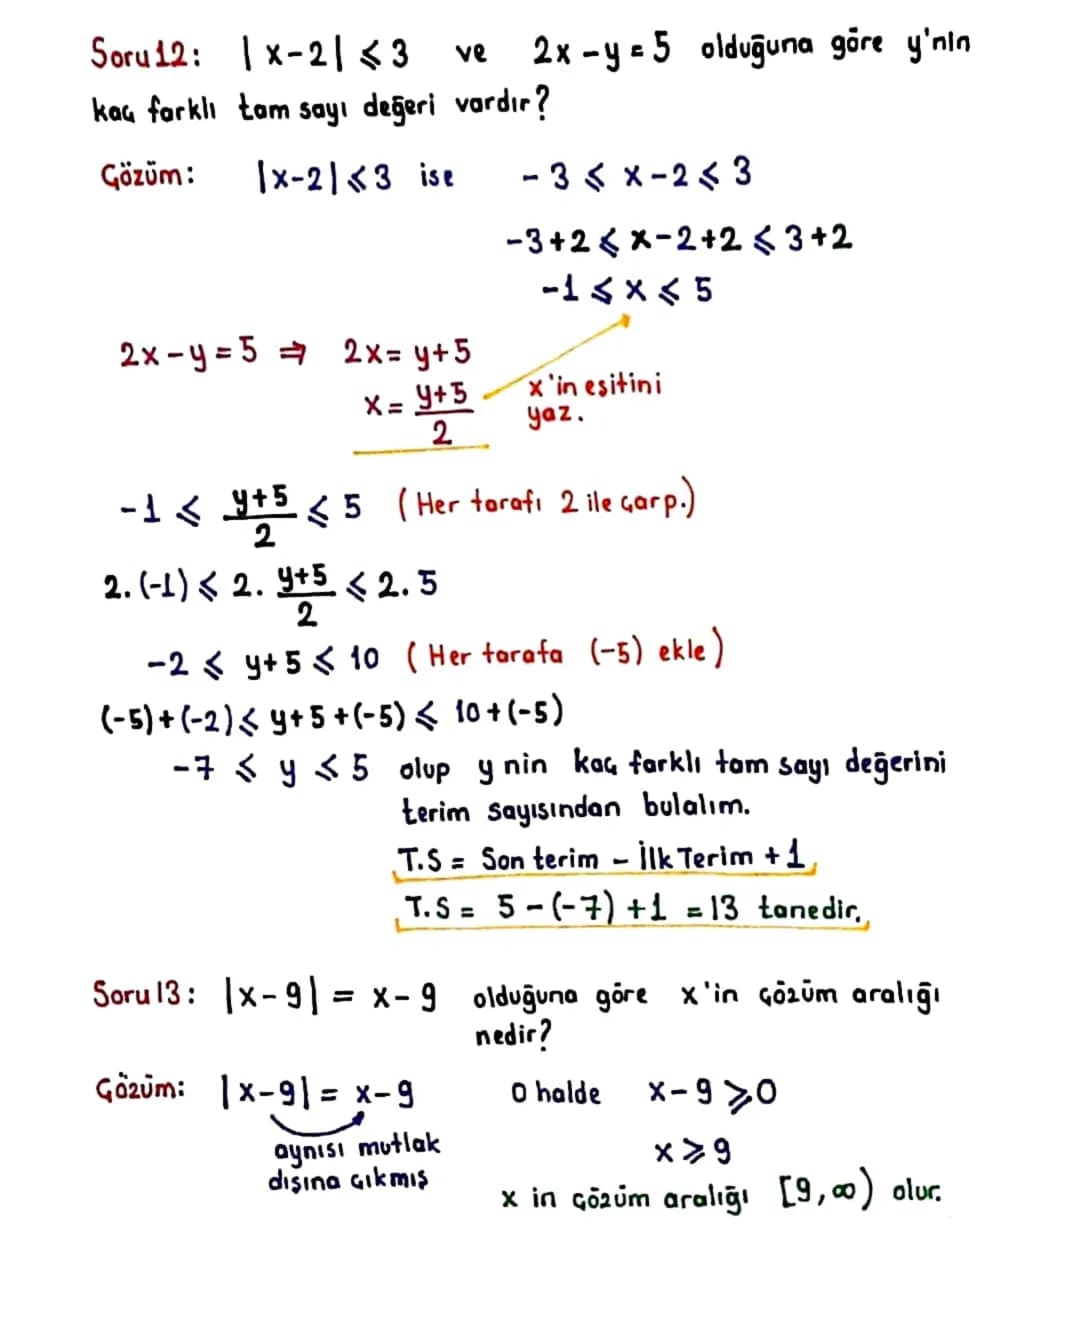 Soru 12: |x-2| ⩽ 3 ve 2x-y=5 olduğuna göre y'nin
kaç farklı tam sayı değeri vardır?
Çözüm: |x-2| ⩽ 3 ise -3 ⩽ x-2 ⩽ 3
-3+2 ⩽ x-2+2 ⩽ 3+2
-1 ⩽ x ⩽ 5
2x-y=5 ⇒ 2x= y+5
x= (y+5)/2 x'in eşitini
yaz.
-1 ⩽ (y+5)/2 ⩽ 5 (Her tarafı 2 ile çarp.)
2.(-1) ⩽ 2. (y+5)/2 ⩽ 2.5
-2 ⩽ y+5 ⩽ 10 (Her tarafa (-5) ekle)
(-5)+(-2) ⩽ y+5+(-5) ⩽ 10+(-5)
-7 ⩽ y ⩽ 5 olup y nin kaç farklı tam sayı değerini
terim sayısından bulalım.
T.S = Son terim - İlk Terim + 1
T.S = 5-(-7)+1 =13 tanedir.
Soru 13: |x-9| = x-9 olduğuna göre x'in çözüm aralığı
nedir?
Çözüm: |x-9| = x-9 O halde x-9 ⩾ 0
aynısı mutlak
dışına çıkmış
x ⩾ 9
x in çözüm aralığı [9,∞) olur.